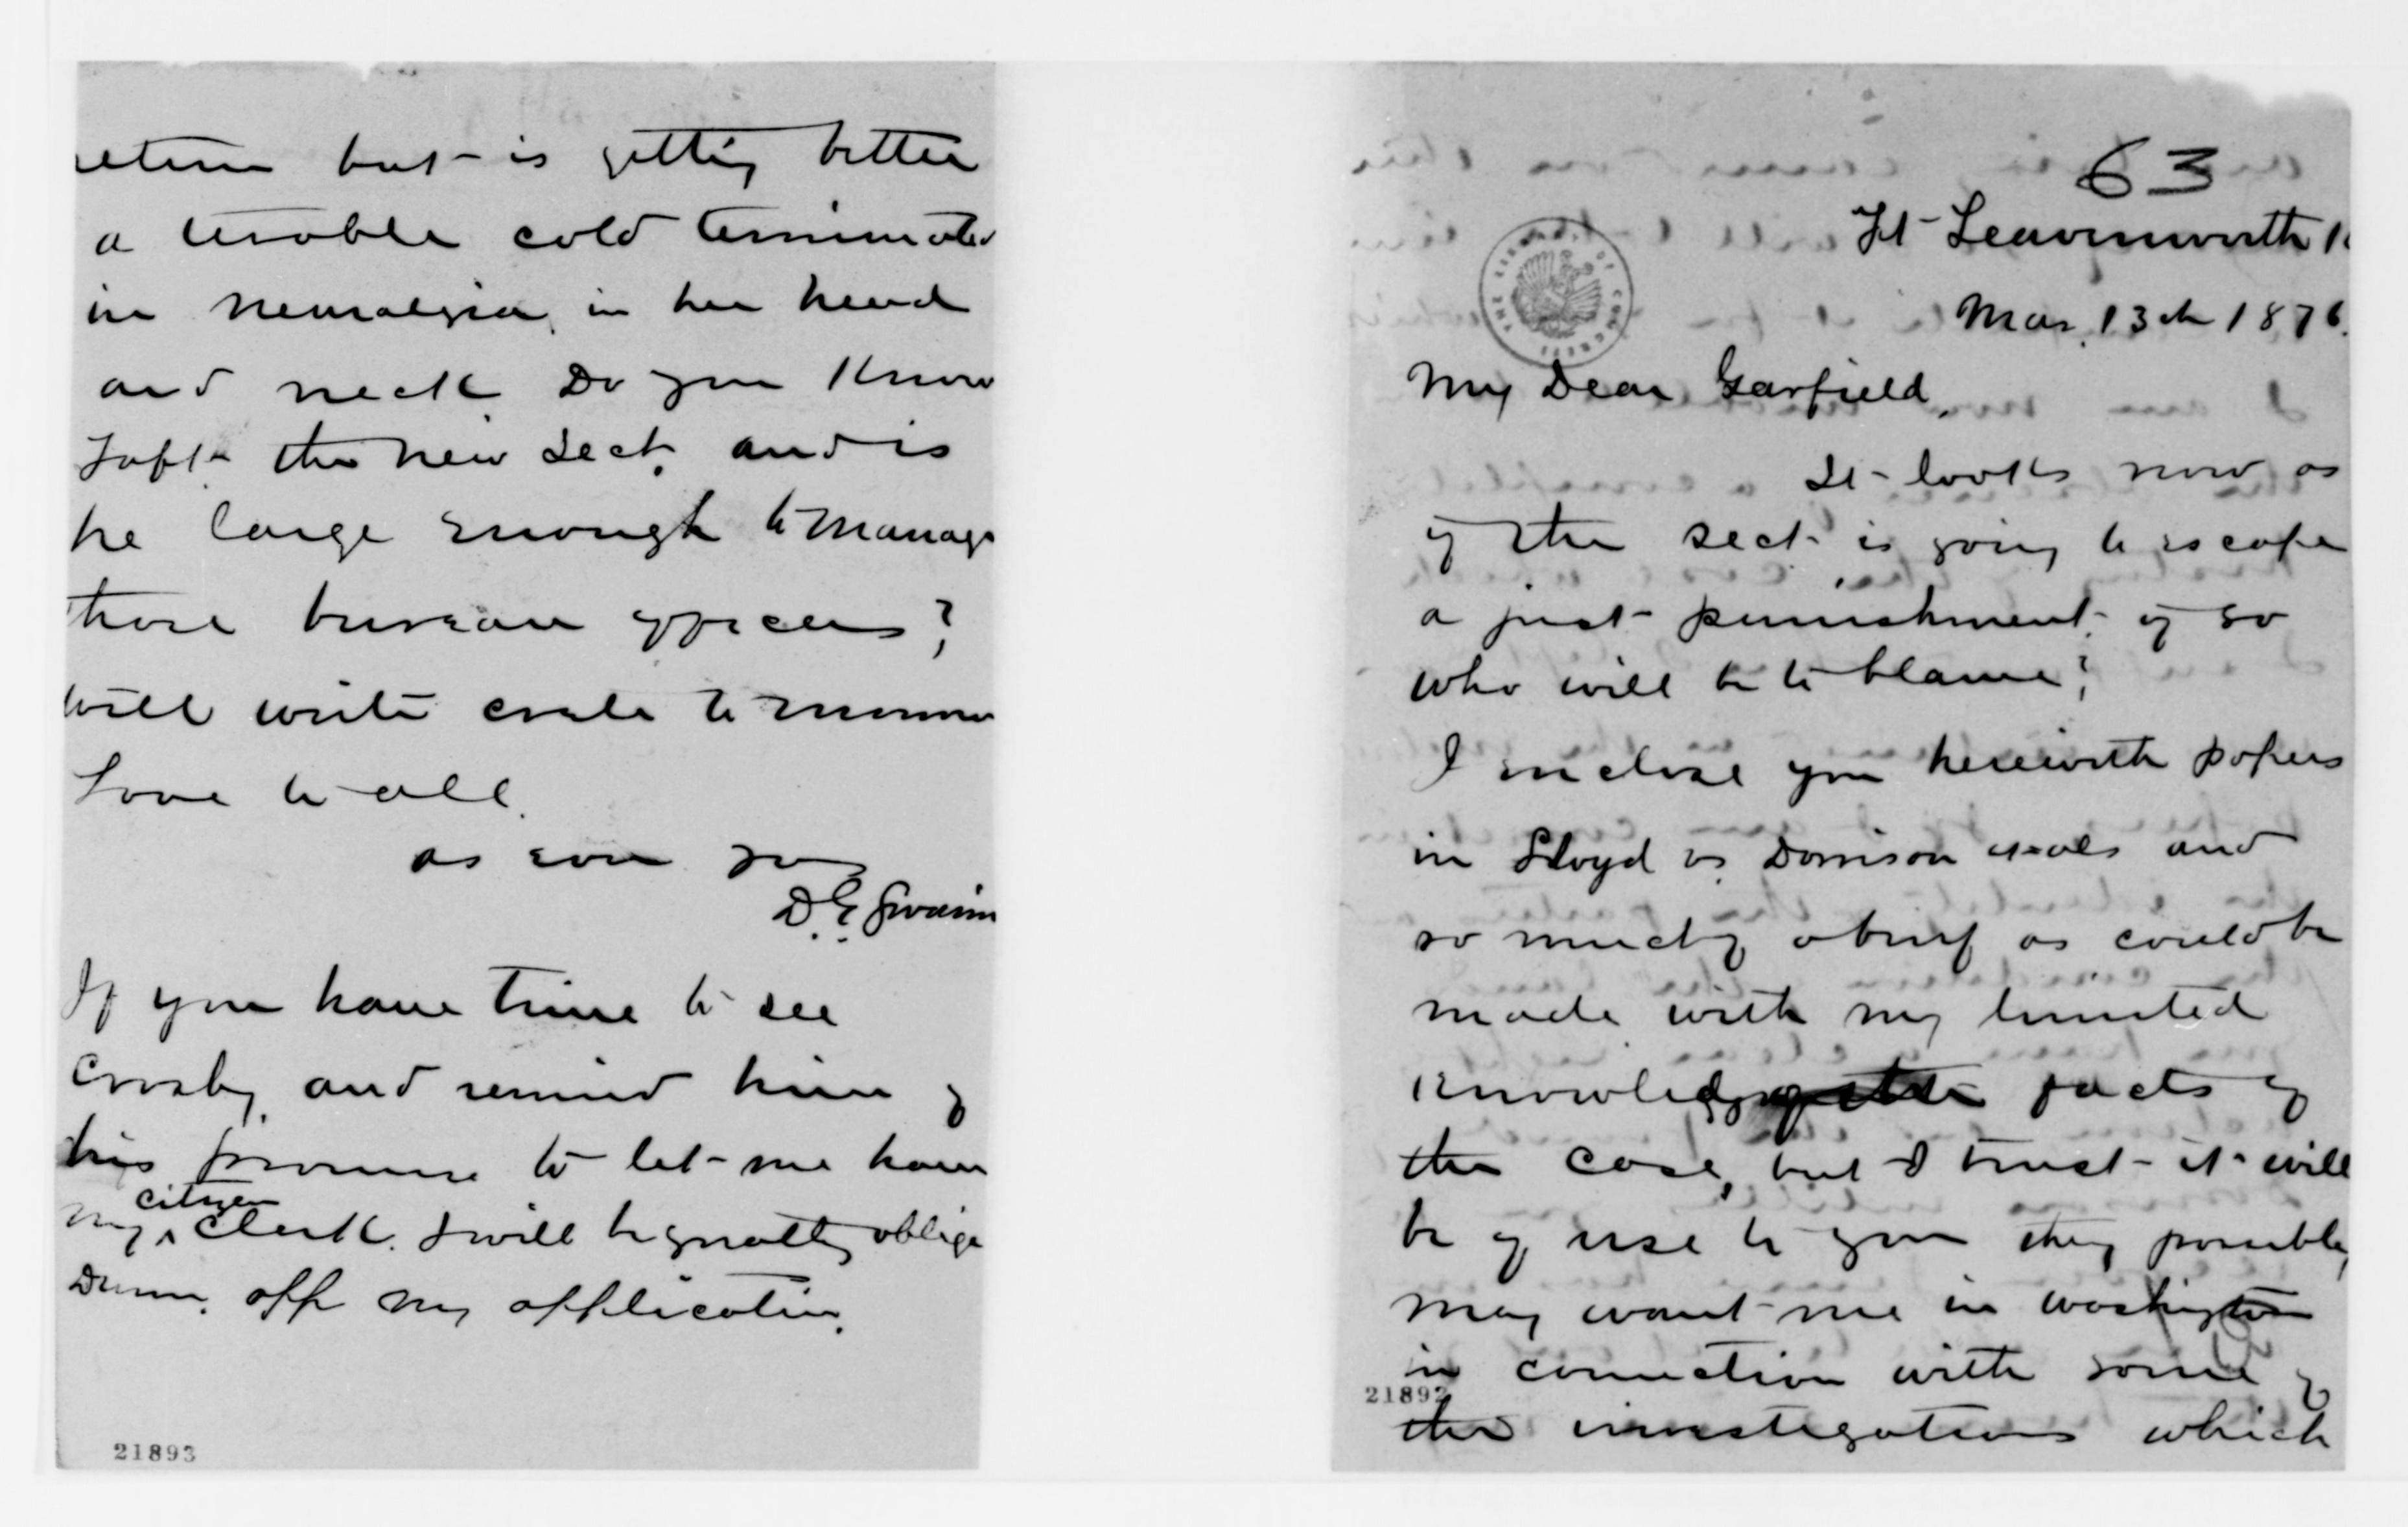 return but is getting better
a terrible cold terminated
in neuralgia in her head
and neck Do you know
Taft the new Sect. and is
he large enough to manage
those bureau officers?
will write to
Love to all.
as ever yrs
D. G. Swaim
If you have time to see
Crosby and remind him of
his promise to let me have
my citizen clerk. I will be greatly oblige
off my application.
21893
63
Ft Leavenworth K
Mar. 13th 1876.
THE LIBRARY OF CONGRESS
My Dear Garfield,
It looks now as
if the Sect. is going to escape
a just punishment, if so
who will be to blame?
I inclose you herewith papers
in Lloyd vs and
so much of a brief as could be
made with my limited
knowledge facts of
the case, but I trust it will
be of use to you they possibly
may want me in Washington
in connection with some of
the investigations which
21892